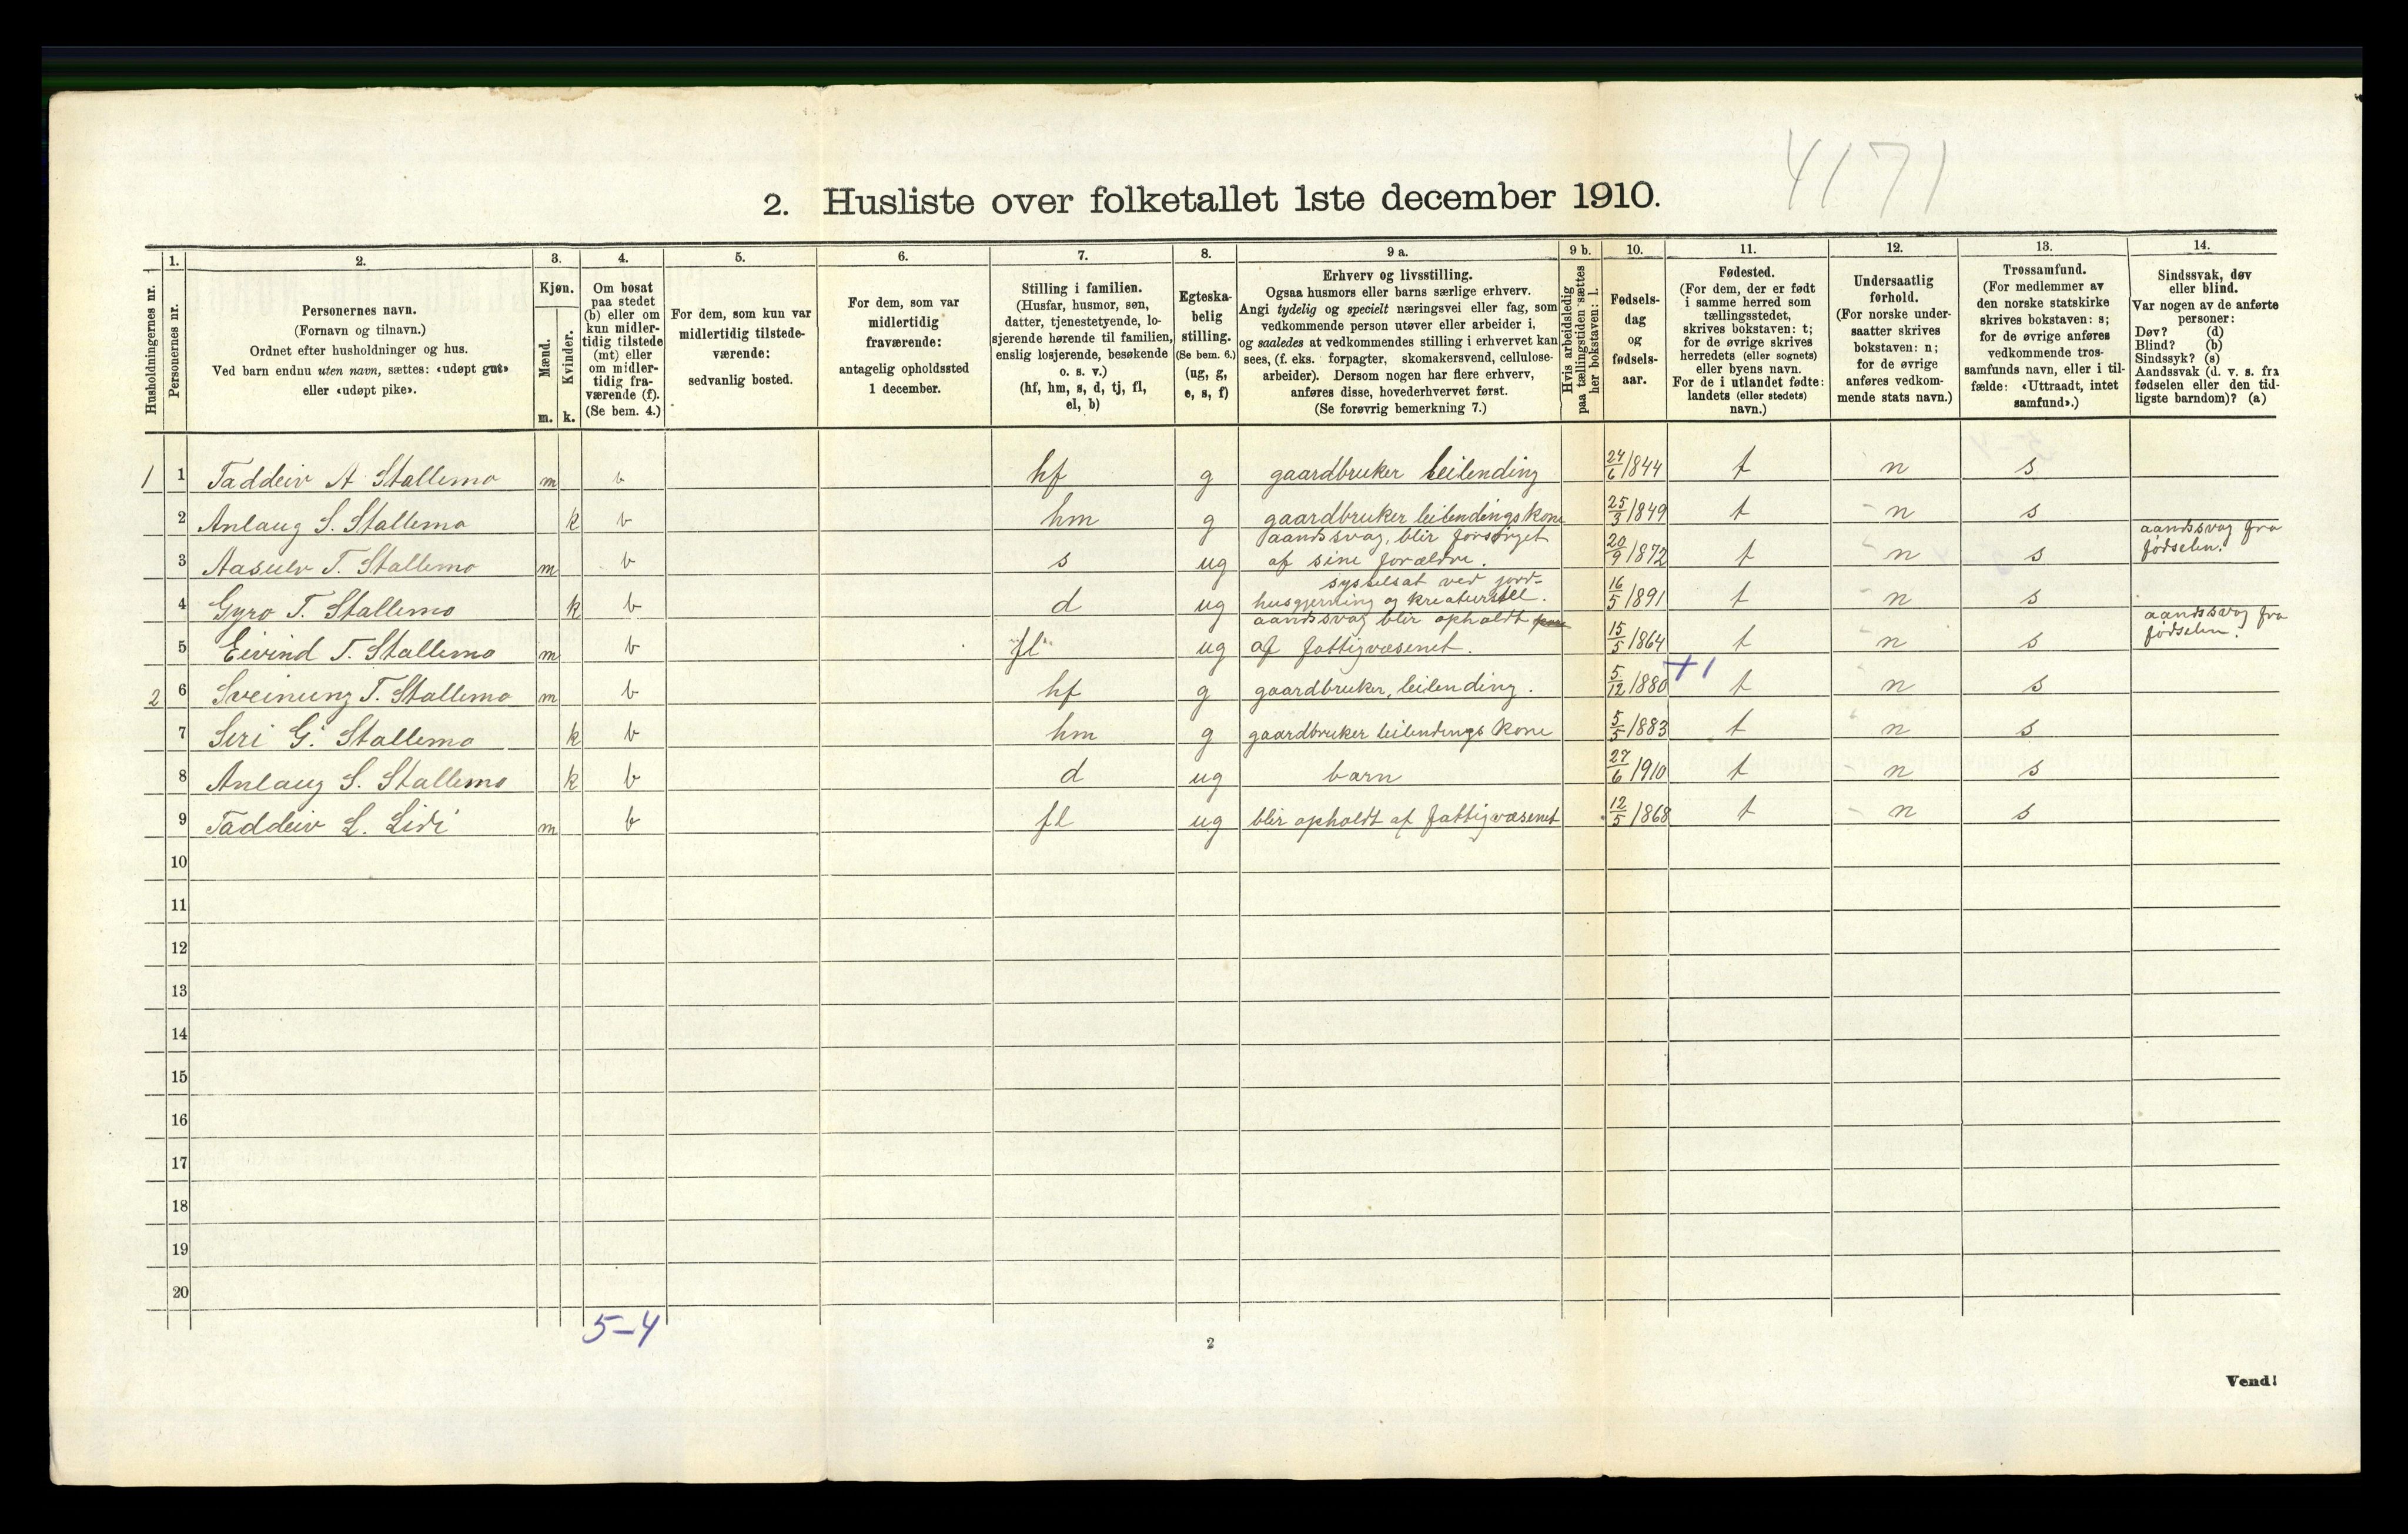 4171
2. Husliste over folketallet 1ste december 1910.
Husholdningernes nr.
1.
Personernes nr.
2.
Personernes navn.
(Fornavn og tilnavn.)
Ordnet efter husholdninger og hus.
Ved barn endnu uten navn, sættes: «udøpt gut»
eller «udøpt pike».
3.
Kjøn.
Mænd.
Kvinder.
m. k.
4.
Om bosat
paa stedet
(b) eller om
kun midler-
tidig tilstede
(mt) eller
om midler-
tidig fra-
værende (f).
(Se bem. 4.)
5.
For dem, som kun var
midlertidig tilstede-
værende:
sedvanlig bosted.
6.
For dem, som var
midlertidig
fraværende:
antagelig opholdssted
1 december.
7.
Stilling i familien.
(Husfar, husmor, søn,
datter, tjenestetyende, lo-
sjerende hørende til familien,
enslig losjerende, besøkende
o. s. v.)
(hf, hm, s, d, tj, fl,
el, b)
8.
Egteska-
belig
stilling.
(Se bem. 6.)
(ug, g,
e, s, f)
9 a.
Erhverv og livsstilling.
Ogsaa husmors eller barns særlige erhverv.
Angi tydelig og specielt næringsvei eller fag, som
vedkommende person utøver eller arbeider i,
og saaledes at vedkommendes stilling i erhvervet kan
sees, (f. eks. forpagter, skomakersvend, cellulose-
arbeider). Dersom nogen har flere erhverv,
anføres disse, hovederhvervet først.
(Se forøvrig bemerkning 7.)
9 b.
Hvis arbeidsledig
paa tællingstiden sættes
her bokstaven: l.
10.
Fødsels-
dag
og
fødsels-
aar.
11.
Fødested.
(For dem, der er født
i samme herred som
tællingsstedet,
skrives bokstaven: t;
for de øvrige skrives
herredets (eller sognets)
eller byens navn.
For de i utlandet fødte:
landets (eller stedets)
navn.)
12.
Undersaatlig
forhold.
(For norske under-
saatter skrives
bokstaven: n;
for de øvrige
anføres vedkom-
mende stats navn.)
13.
Trossamfund.
(For medlemmer av
den norske statskirke
skrives bokstaven: s;
for de øvrige anføres
vedkommende tros-
samfunds navn, eller i til-
fælde: «Uttraadt, intet
samfund».)
14.
Sindssvak, døv
eller blind.
Var nogen av de anførte
personer:
Døv? (d)
Blind? (b)
Sindssyk? (s)
Aandssvak (d. v. s. fra
fødselen eller den tid-
ligste barndom)? (a)
1 1 Taddeiv A Stallemo m b hf g gaardbruker leilending 24/6 1844 t n s
2 Anlaug S. Stallemo k b hm g gaardbruker leilendings kone 25/3 1849 t n s
3 Aasulv T. Stallemo m b s ug aandssvag, blir forsørget
af sine forældre. 20/9 1872 t n s aandssvag fra
fødselen.
4 Gyro T. Stallemo k b d ug sysselsat ved jord-
husgjerning og kreaturstell. 16/5 1891 t n s
5 Eivind T. Stallemo m b fl ug aandssvag blir opholdt
af fattigvæsenet. 15/5 1864 t n s aandssvag fra
fødselen.
2 6 Sveinung T. Stallemo m b hf g gaardbruker, leilending. 5/12 1880 +1 t n s
7 Siri G. Stallemo k b hm g gaardbruker leilendings kone 5/5 1883 t n s
8 Anlaug S. Stallemo k b d ug barn 27/6 1910 t n s
9 Taddeiv L. Lidi m b fl ug blir opholdt af fattigvæsenet 12/5 1868 t n s
10
11
12
13
14
15
16
17
18
19
20
5-4
2
Vend!